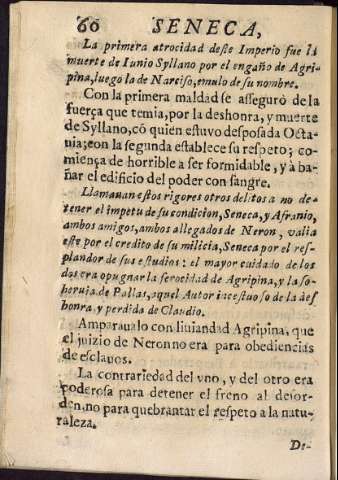 60 SENECA,
La primera atrocidad deste Imperio fue la
muerte de Iunio Syllano por el engaño de Agri-
pina, luego la de Narciso, emulo de su nombre.
Con la primera maldad se asseguró de la
fuerça que temia, por la deshonra, y muerte
de Syllano, có quien estuvo desposada Octa-
uia; con la segunda establece su respeto; co-
miença de horrible a ser formidable, y à ba-
ñar el edificio del poder con sangre.
Llamauan estos rigores otros delitos a no de-
tener el impetu de su condicion, Seneca, y Afranio,
ambos amigos, ambos allegados de Neron, valia
este por el credito de su milicia, Seneca por el res-
plandor de sus estudios: el mayor cuidado de los
dos era opugnar la ferocidad de Agripina, y la so-
beruia de Pallas, aquel Autor incestuoso de la des
honra y perdida de Claudio.
Amparaualo con liuiandad Agripina, que
el juizio de Neron no era para obediencias
de esclauos.
La contrariedad del vno, y del otro era
poderosa para detener el freno al desor-
den, no para quebrantar el respeto a la natu-
raleza.
De-